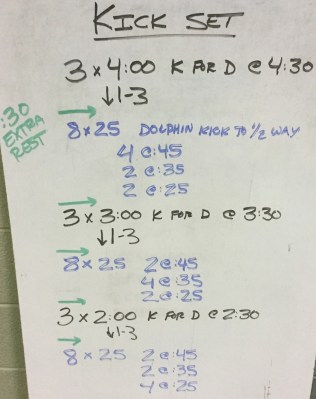 KICK SET
3 x 4:00 K FOR D @ 4:30
↓1-3
:30 EXTRA REST
8 x 25 DOLPHIN KICK TO 1/2 WAY
4 @ :45
2 @ :35
2 @ :25
3 x 3:00 K FOR D @ 3:30
↓1-3
8 x 25 2 @ :45
4 @ :35
2 @ :25
3 x 2:00 K FOR D @ 2:30
↓1-3
8 x 25 2 @ :45
2 @ :35
4 @ :25